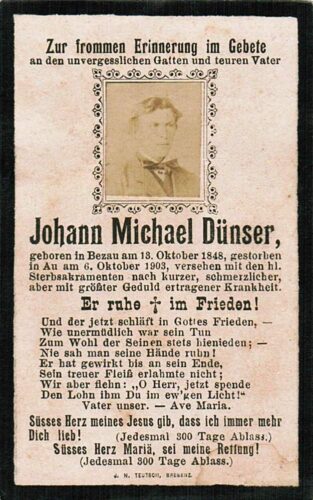 Zur frommen Erinnerung im Gebete
an den unvergesslichen Gatten und teuren Vater
Johann Michael Dünser,
geboren in Bezau am 13. Oktober 1848, gestorben
in Au am 6. Oktober 1903, versehen mit den hl.
Sterbsakramenten nach kurzer, schmerzlicher,
aber mit größter Geduld ertragener Krankheit.
Er ruhe † im Frieden!
Und der jetzt schläft in Gottes Frieden, —
Wie unermüdlich war sein Tun
Zum Wohl der Seinen stets hienieden; —
Nie sah man seine Hände ruhn!
Er hat gewirkt bis an sein Ende,
Sein treuer Fleiß erlahmte nicht;
Wir aber flehn: „O Herr, jetzt spende
Den Lohn ihm Du im ew'gen Licht!"
Vater unser. — Ave Maria.
Süsses Herz meines Jesus gib, dass ich immer mehr
Dich lieb! (Jedesmal 300 Tage Ablass.)
Süsses Herz Mariä, sei meine Rettung!
(Jedesmal 300 Tage Ablass.)
J. N. TEUTSCH, BREGENZ.